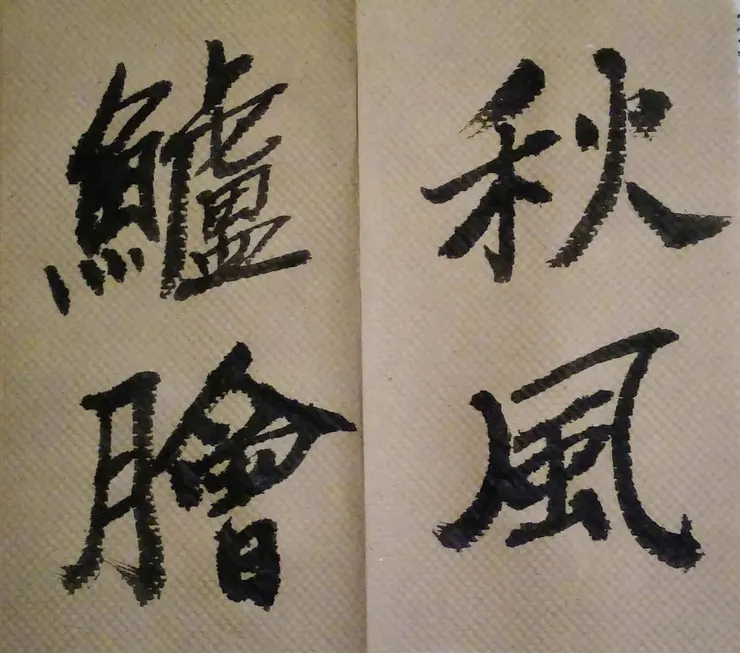 秋風
鱸膾